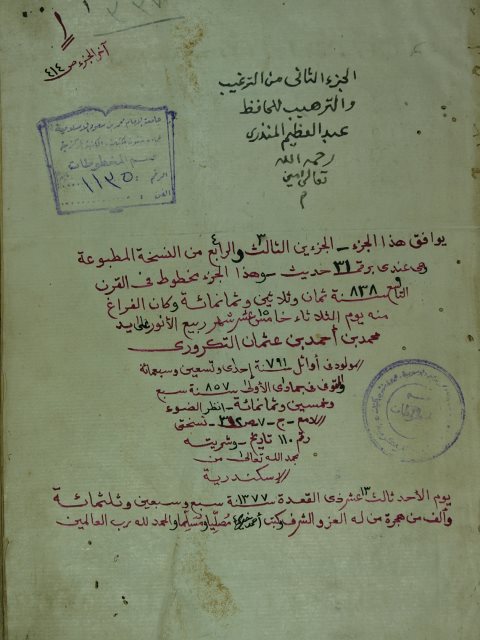 آخر الجزء ص ٤١٤
الجزء الثاني من الترغيب
والترهيب للحافظ
عبد العظيم المنذري
رحمه الله
تعالى آمين
م
جامعة الإمام محمد بن سعود الإسلامية
قسم المخطوطات
الرقم ١١٣٥
يوافق هذا الجزء - الجزءين الثالث ٣ والرابع ٤ من النسخة المطبوعة
وهي عندي برقم ٣١ حديث - وهذا الجزء مخطوط في القرن
التاسع ٨٣٨ سنة ثمان وثلاثين وثمانمائة وكان الفراغ
منه يوم الثلاثاء خامس ١٥ عشر شهر ربيع الأنور على يد
محمد بن أحمد بن عثمان التكروري
المولود في أوائل ٧٩١ سنة إحدى وتسعين وسبعمائة
والمتوفى في جمادى الأولى ٨٥٧ سنة سبع
وخمسين وثمانمائة - انظر الضوء
اللامع - ج - ٧ ص - نسختي
رقم ١١٠ تاريخ - وشريته
بحمد الله تعالى من
الإسكندرية
يوم الأحد ثالث ١٣ عشر ذي القعدة سنة ١٣٧٧ سبع وسبعين وثلثمائة
وألف من هجرة من له العز والشرف وكتب أحمد خيري مصليا ومسلما والحمد لله رب العالمين